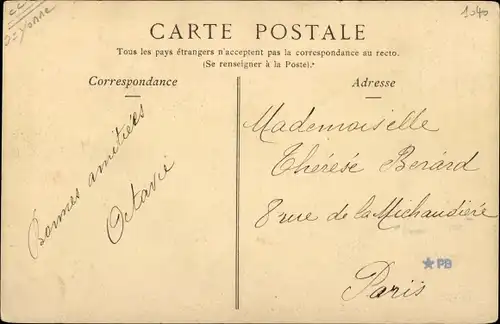 1040
CARTE POSTALE
Tous les pays étrangers n'acceptent pas la correspondance au recto.
(Se renseigner à la Poste).
Correspondance
Adresse
Bonnes amitiées
Octavie
Mademoiselle
Thérèse Berard
8 rue de la Michaudière
Paris
PB